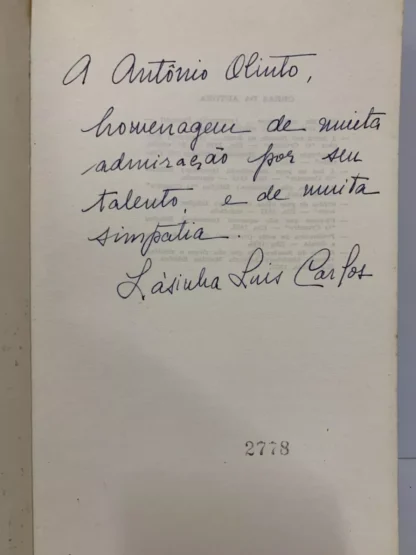 A Antônio Olinto,
homenagem de muita
admiração por seu
talento, e de muita
simpatia.
Lásinha Luis Carlos
2778